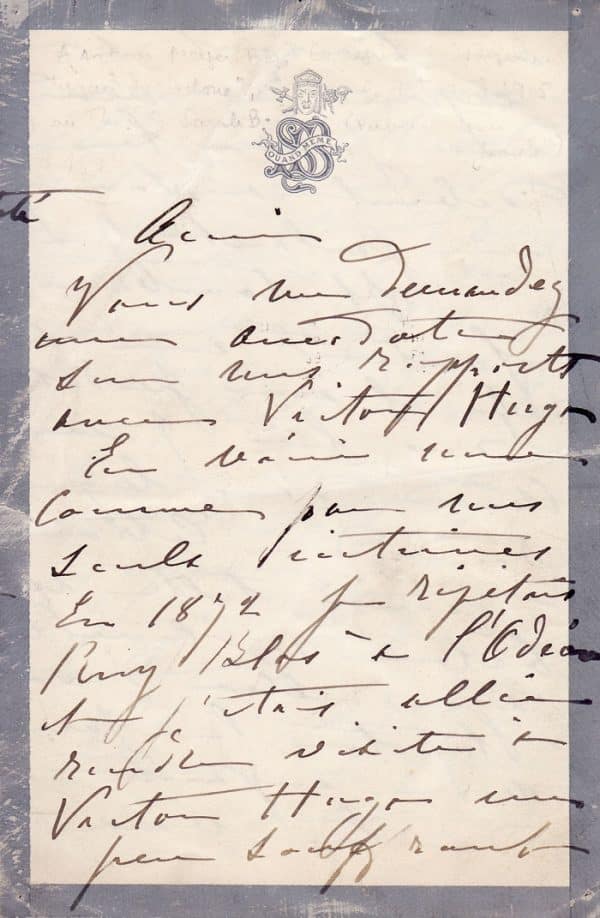 QUAND MEME
té
Vous me demandez
une anecdote
sur mes rapports
avec Victor Hugo
En voici une
connue par nous
seuls intimes
En 1872 je répétais
Ruy Blas à l'Odéon
et j'étais allée
rendre visite à
Victor Hugo un
peu souffrant